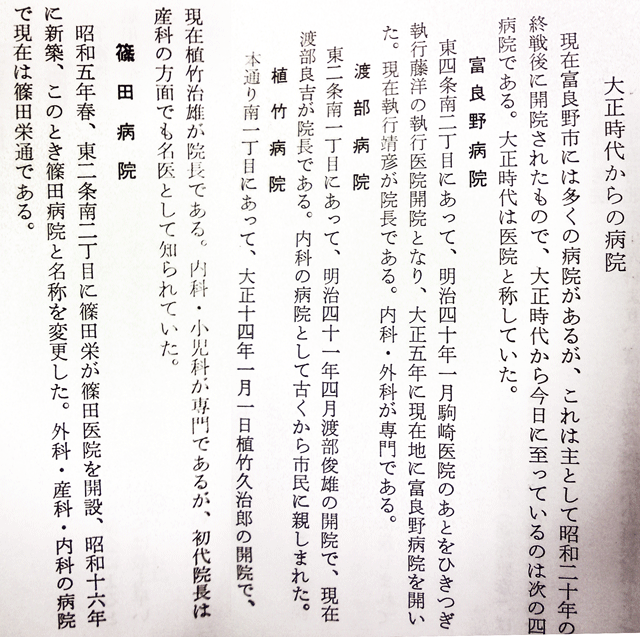 大正時代からの病院
現在富良野市には多くの病院があるが、これは主として昭和二十年の
終戦後に開院されたもので、大正時代から今日に至っているのは次の四
病院である。大正時代は医院と称していた。
富良野病院
東四条南二丁目にあって、明治四十年一月駒崎医院のあとをひきつぎ
執行藤洋の執行医院開院となり、大正五年に現在地に富良野病院を開い
た。現在執行靖彦が院長である。内科・外科が専門である。
渡部病院
東二条南一丁目にあって、明治四十一年四月渡部俊雄の開院で、現在
渡部良吉が院長である。内科の病院として古くから市民に親しまれた。
植竹病院
本通り南一丁目にあって、大正十四年一月一日植竹久治郎の開院で、
現在植竹治雄が院長である。内科・小児科が専門であるが、初代院長は
産科の方面でも名医として知られていた。
篠田病院
昭和五年春、東二条南二丁目に篠田栄が篠田医院を開設、昭和十六年
に新築、このとき篠田病院と名称を変更した。外科・産科・内科の病院
で現在は篠田栄通である。